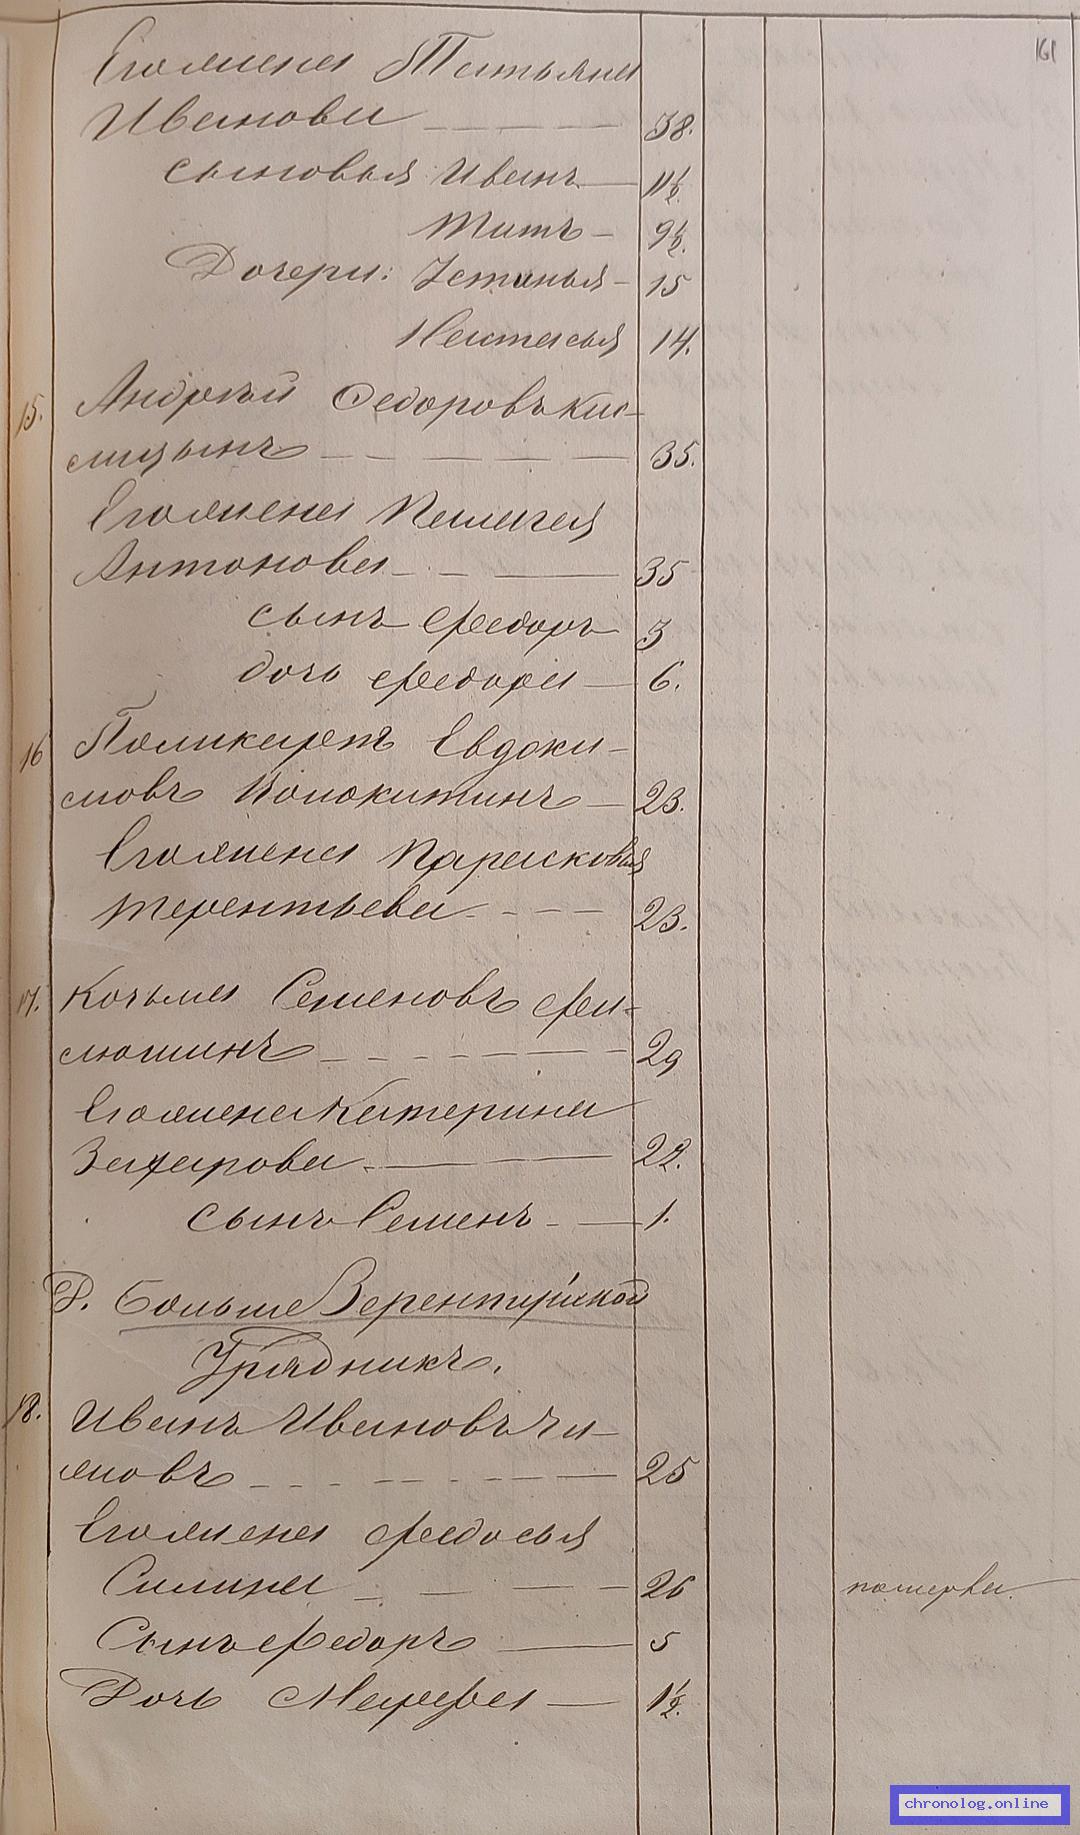 161
Его жена Татьяна
Иванова 38.
сыновья Иванъ 11½
Титъ 9½.
Дочери: Устинья 15
Настасья 14.
15. Андрѣй Федоровъ Ка-
мицынъ 35.
Его жена Пелагея
Антонова 35
сынъ Федоръ 3
дочь Федора 6.
16 Поликарпъ Евдоки-
мовъ Волокитинъ 23.
Его жена Парасковья
Терентьева 23.
17. Козьма Семеновъ Фи-
люшинъ 29
Его жена Катерина
Захарова 22.
сынъ Семенъ 1.
Д. Больше
Урядникъ.
18. Иванъ Ивановъ
25
Его жена Федосья
Силина 26 померла
Сынъ Федоръ 5
Дочь Марфа 1½.
chronolog.online